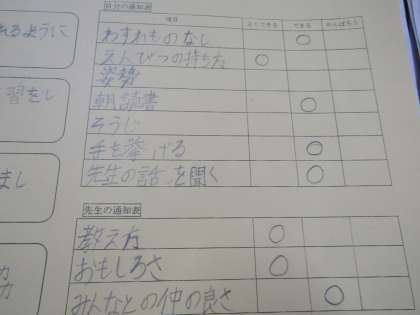 れるように
習をし
まし
自分の通知表
項目 よくできる できる がんばろう
わすれものなし
えんぴつの持ち方
姿勢
朝読書
そうじ
手を挙げる
先生の話を聞く
先生の通知表
教え方
おもしろさ
みんなとの仲の良さ